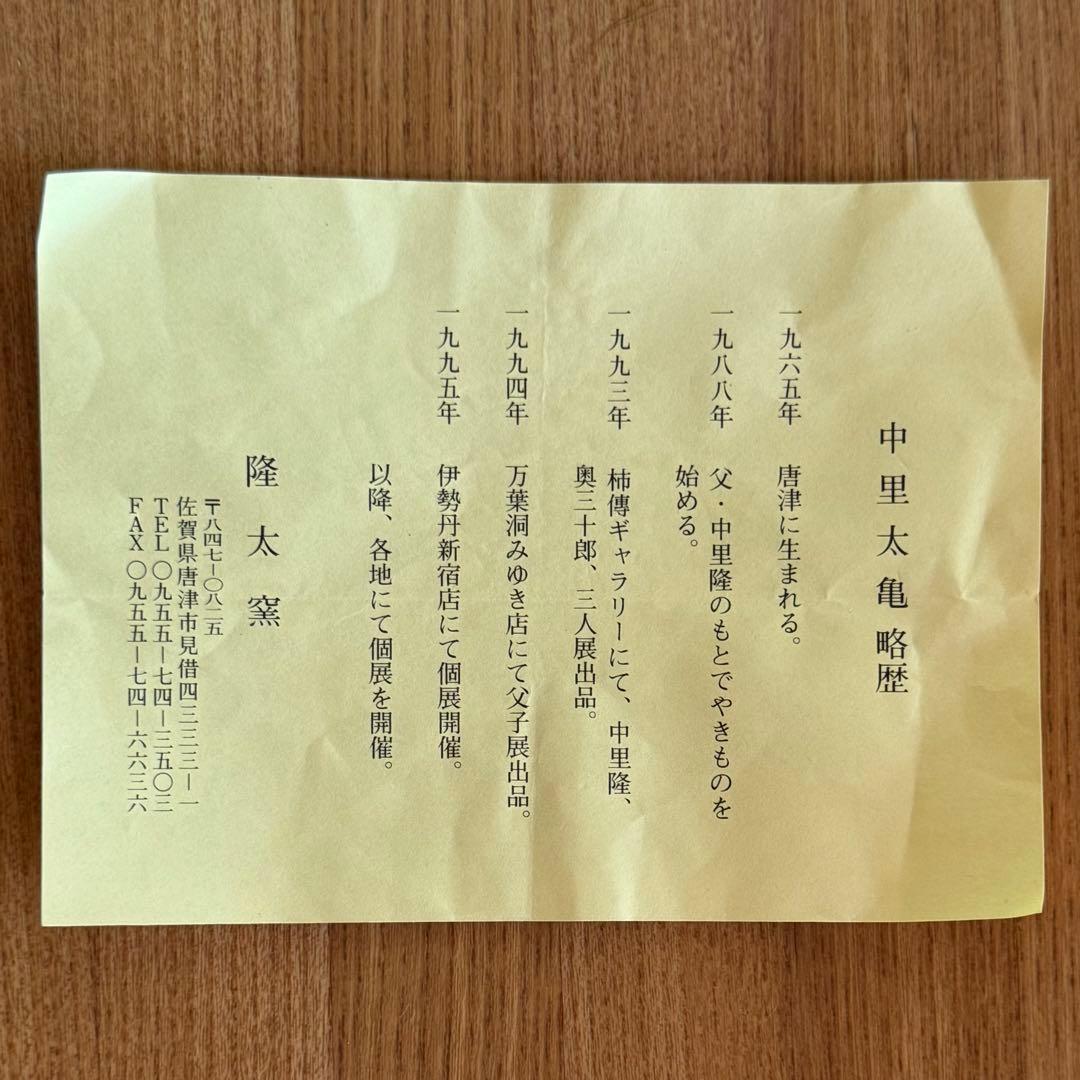 中里太亀 略歴
一九六五年 唐津に生まれる。
一九八八年 父・中里隆のもとでやきものを
始める。
一九九三年 柿傳ギャラリーにて、中里隆、
奥三十郎、三人展出品。
一九九四年 万葉洞みゆき店にて父子展出品。
一九九五年 伊勢丹新宿店にて個展開催。
以降、各地にて個展を開催。
隆太窯
〒八四七―〇八二五
佐賀県唐津市見借四三三三―一
TEL〇九五五―七四―三五〇三
FAX〇九五五―七四―六六三六